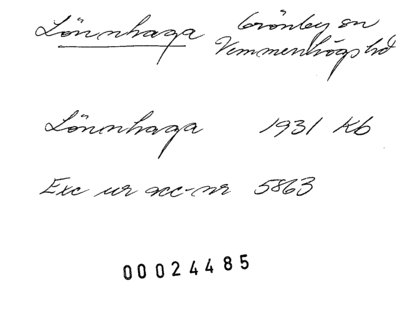 Lönnhaga Grönby sn
Vemmenhögs hd
Lönnhaga 1931 Kb
Exc ur acc-nr 5863
00024485